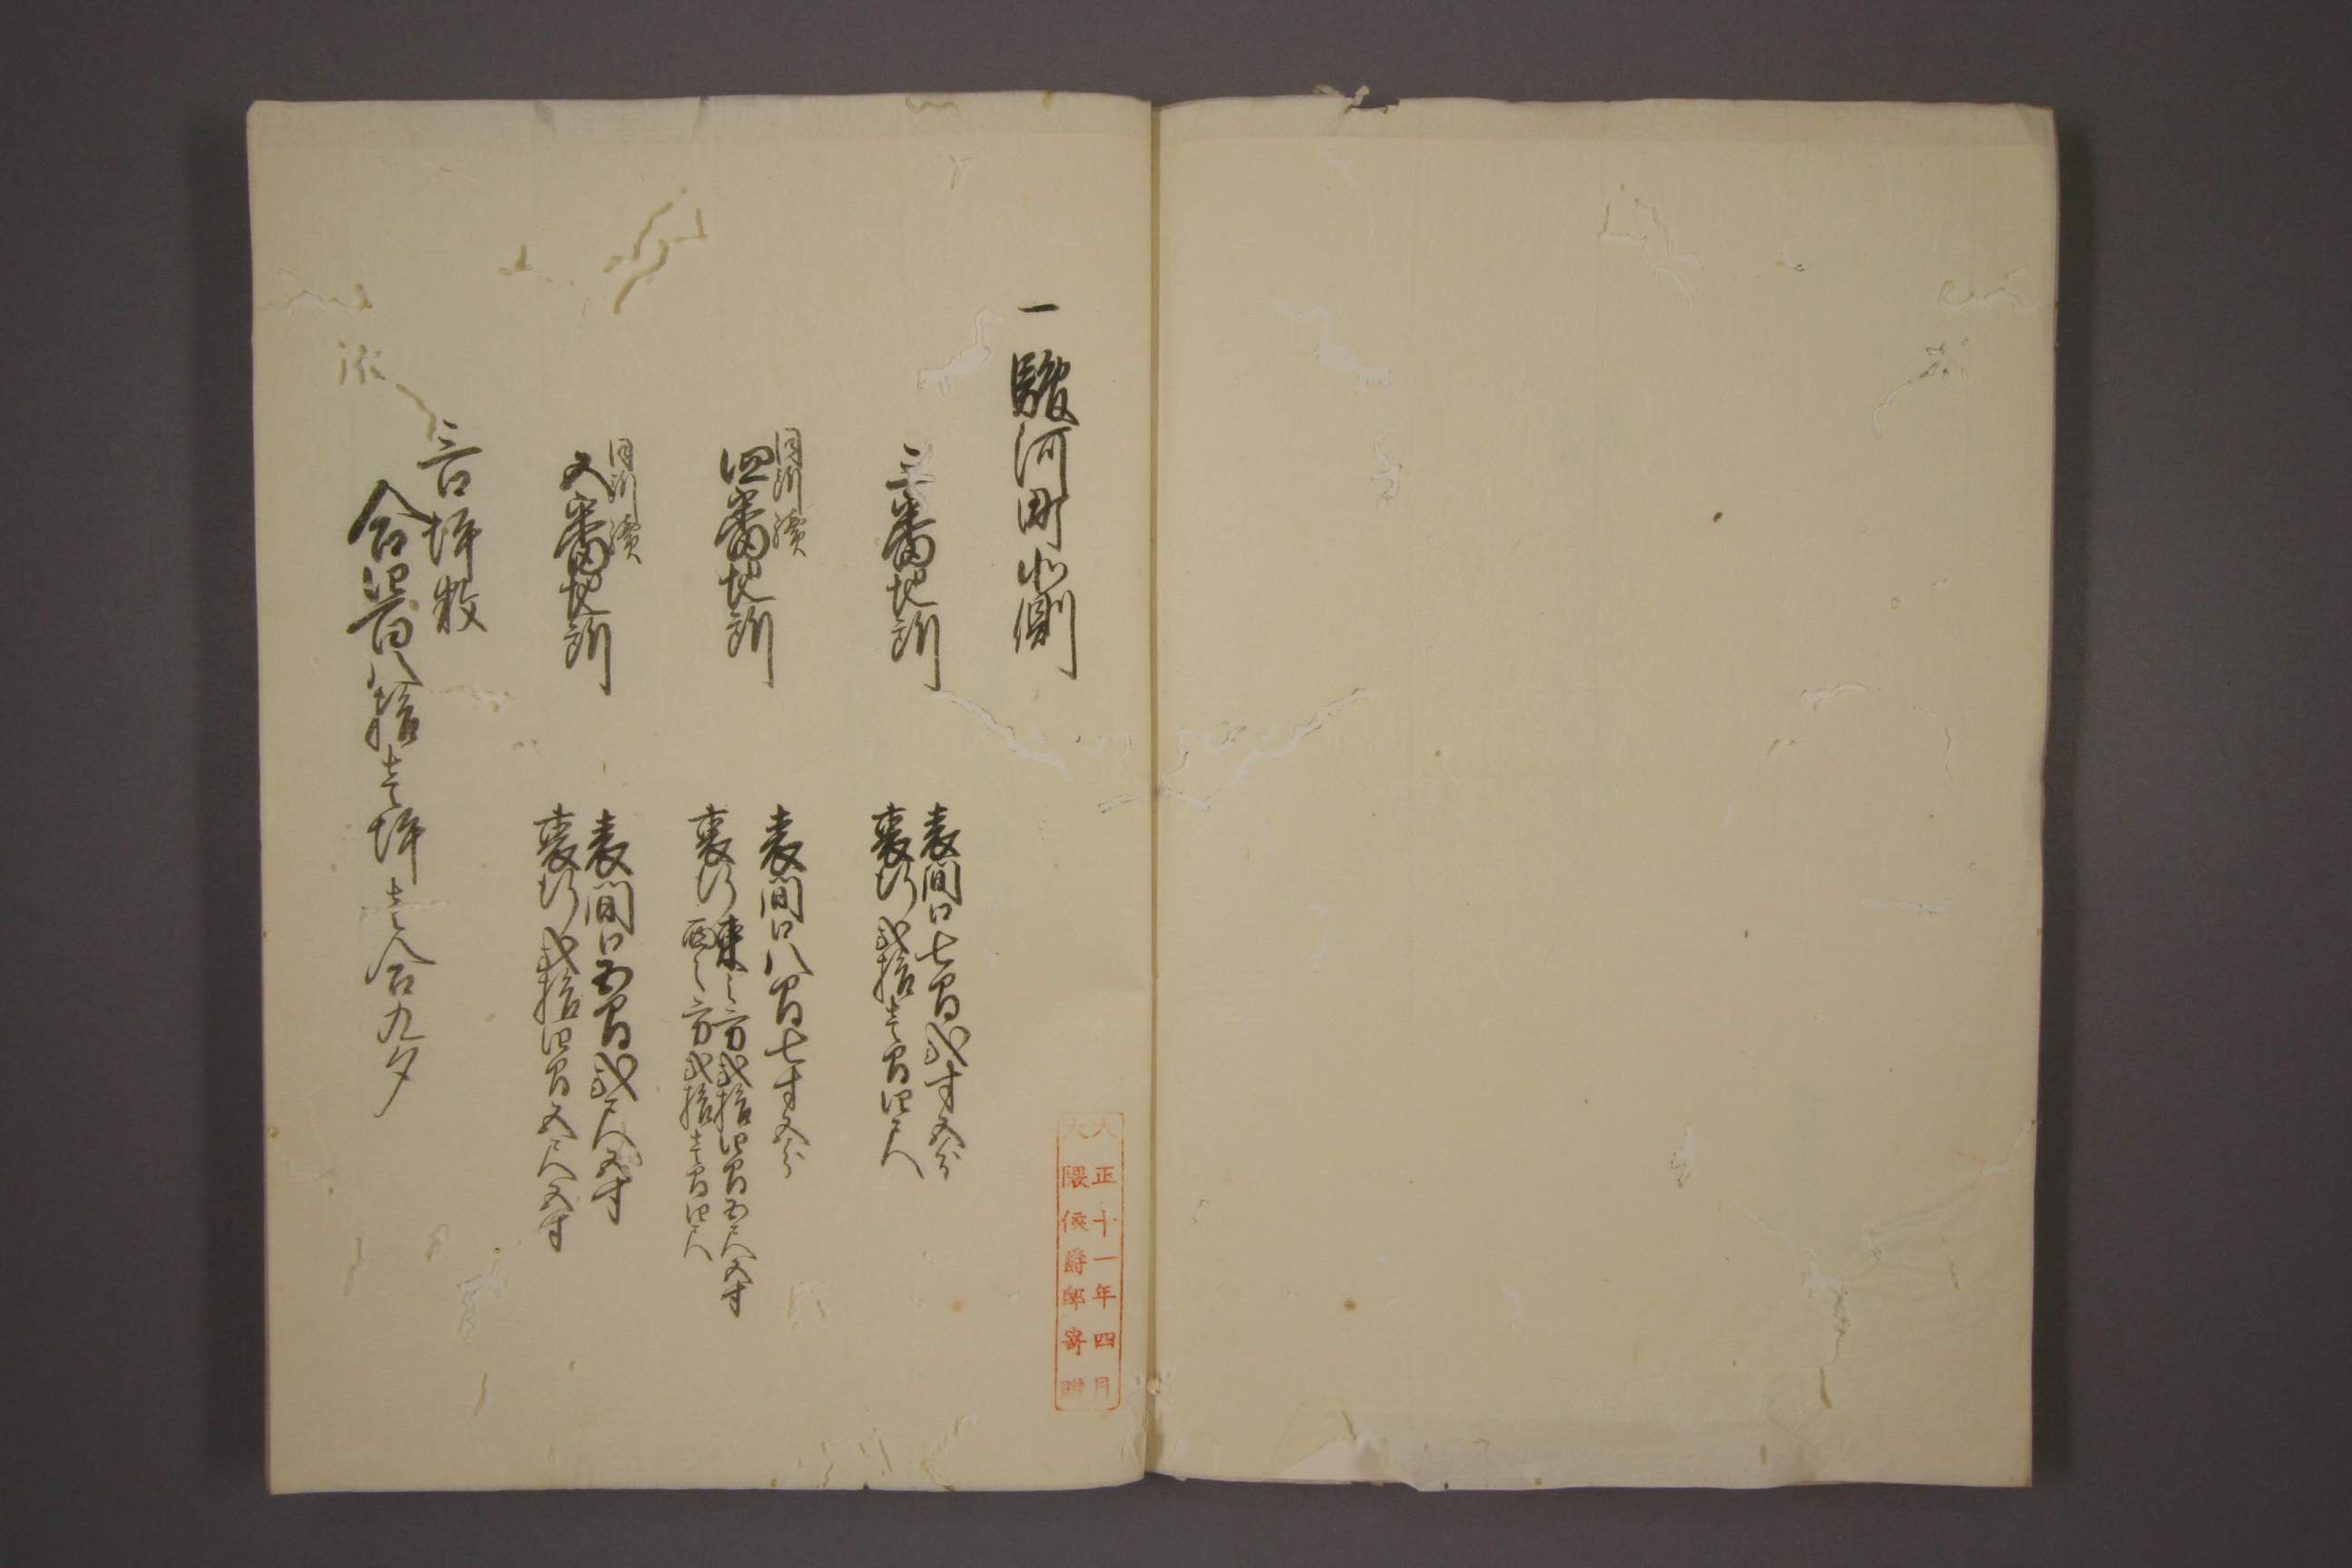 一駿河町北側
三番地所
表間口七間弐寸五分
裏行弐拾壱間四尺
同所続
四番地所
表間口八間七寸五分
裏行東之方弐拾四間五尺五寸
西之方弐拾壱間四尺
同所続
五番地所
表間口五間弐尺五寸
裏行弐拾四間五尺五寸
三口坪数
合四百八拾壱坪壱合九夕
大正十一年四月
大隈侯爵邸寄贈